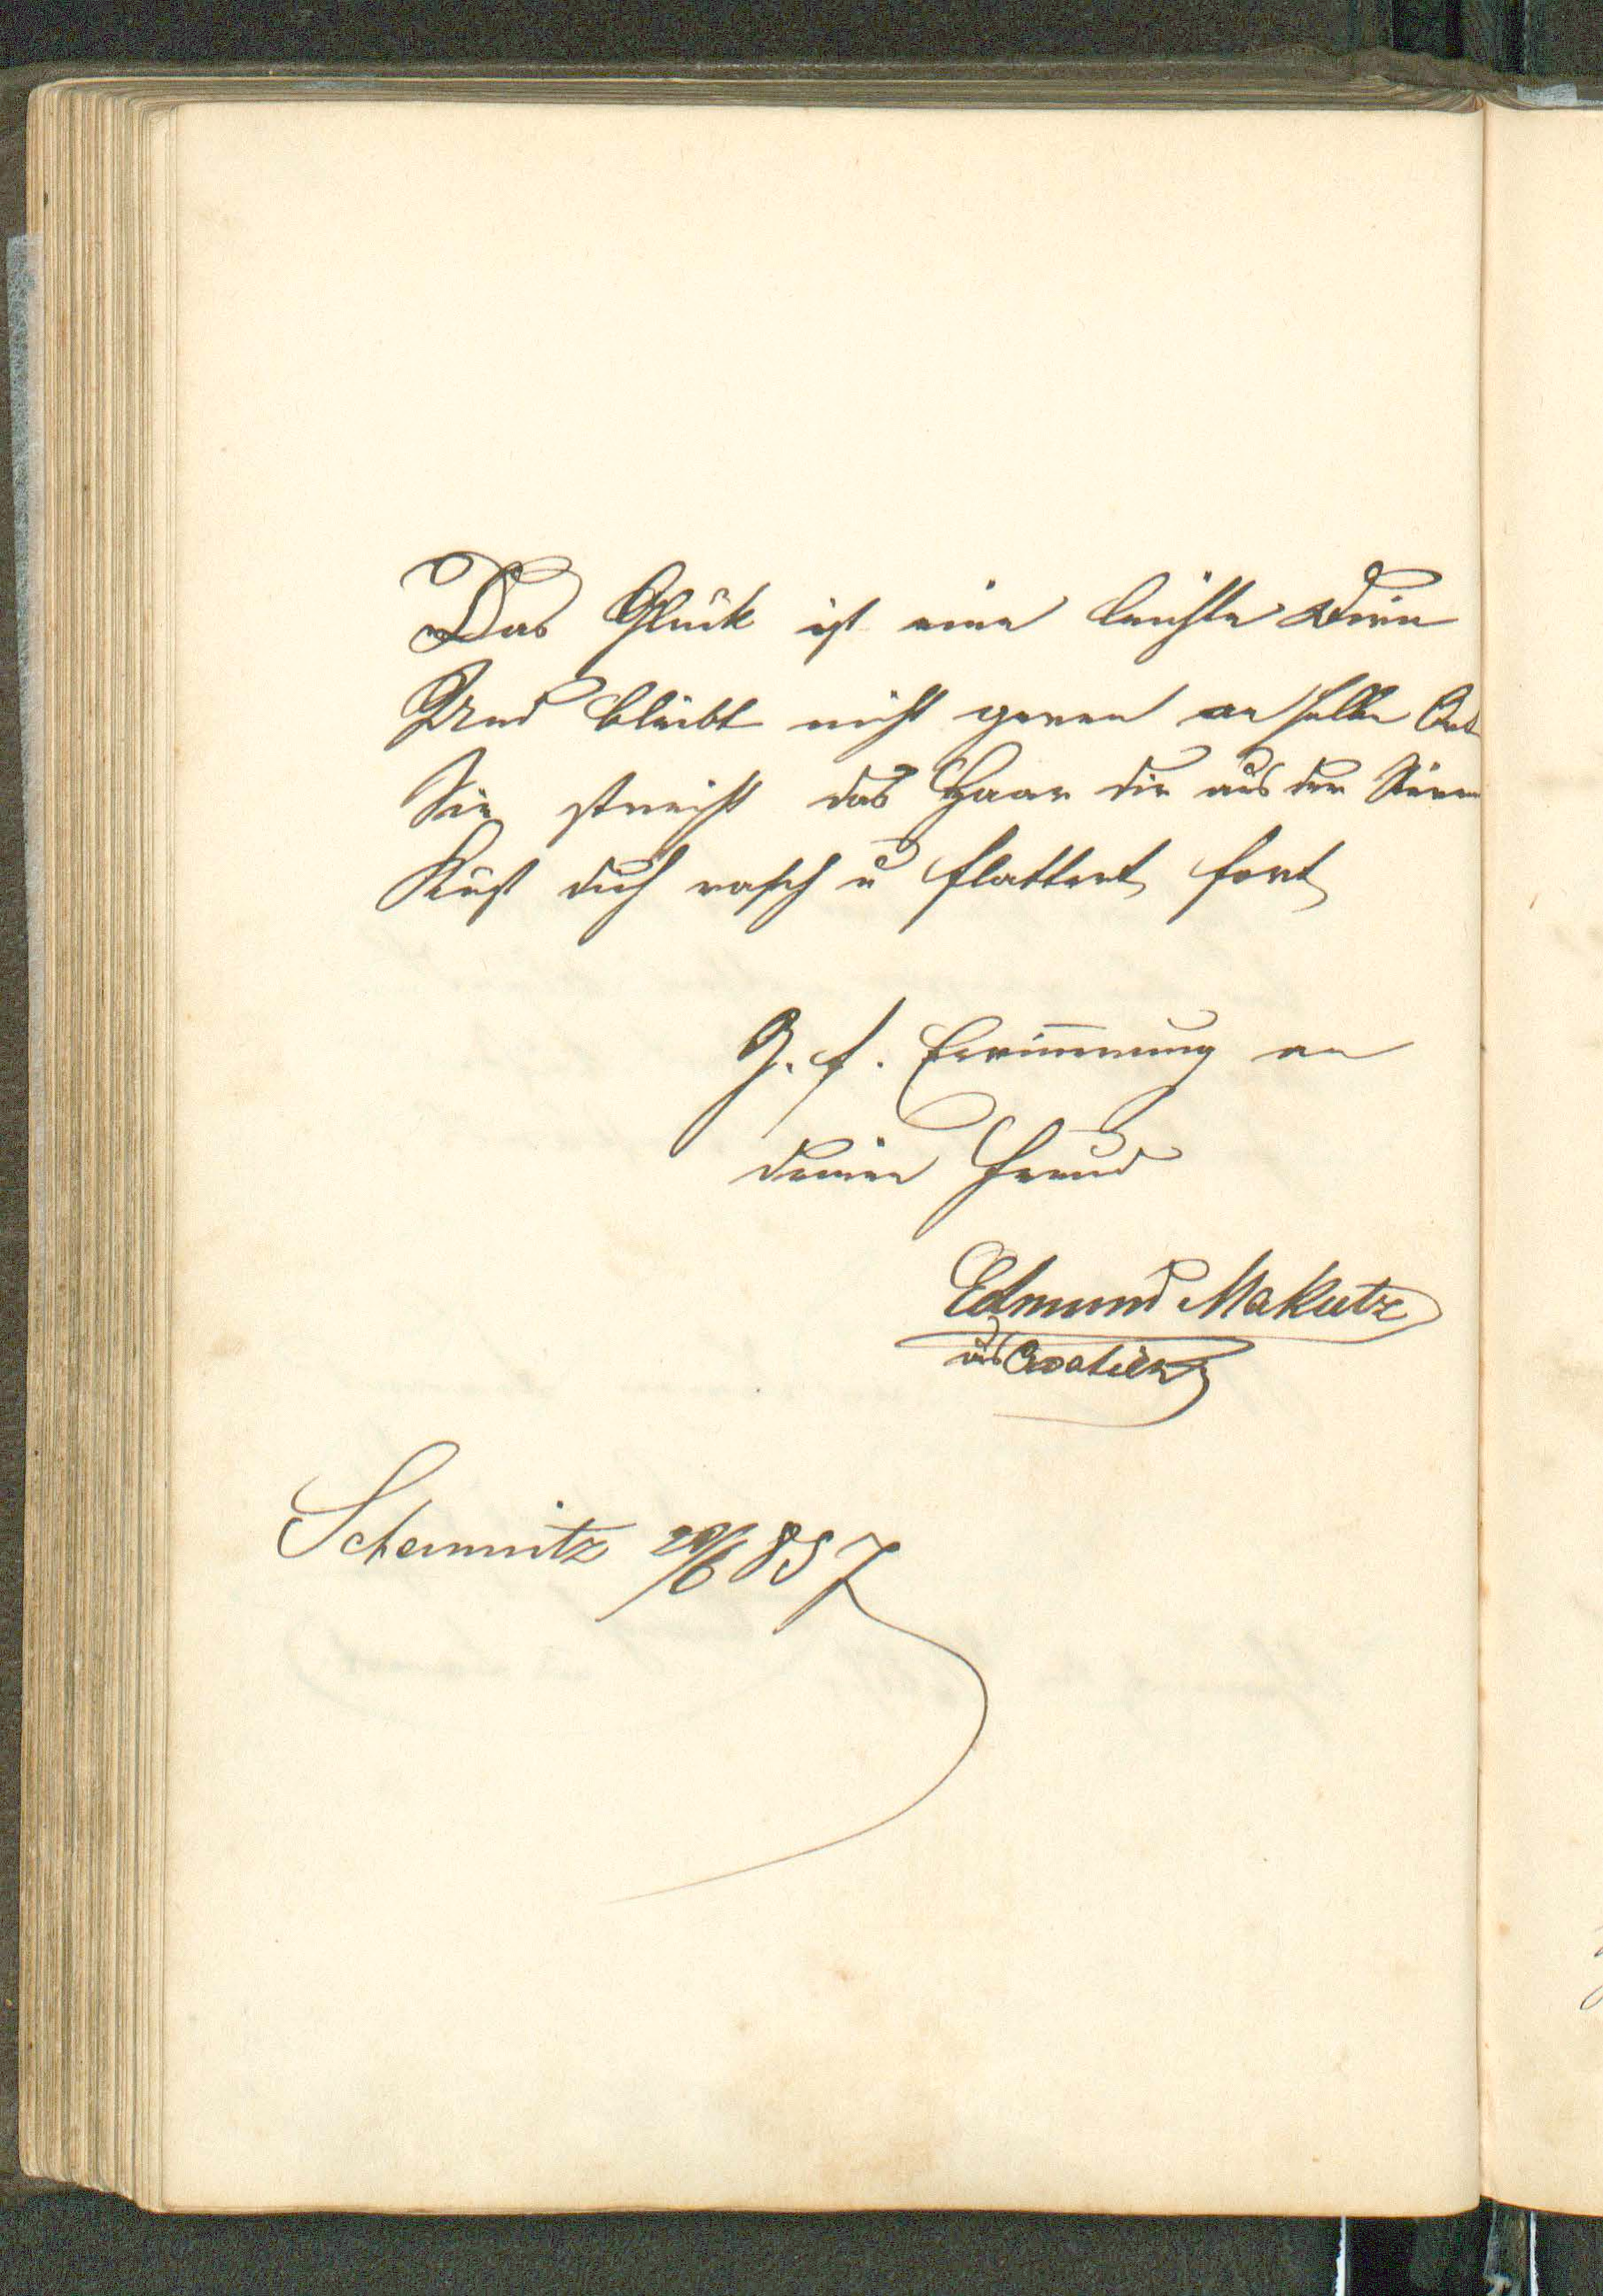 Das Glück ist eine leichte Dirn
Und bleibt nicht geren an selbe Ort
Sie streicht das Haar dir aus der Stirne
Küst dich rasch u flattert fort
Z. f. Erinnerung an
deinen Freund
Edmund Makutz
aus Croatien
Schemnitz 20/6 857